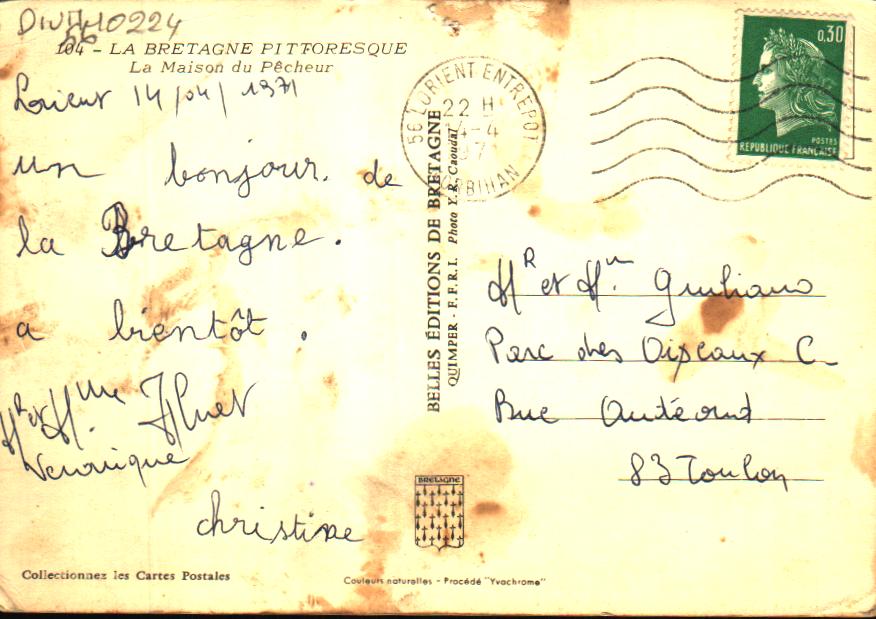 DIVAH0224
104 - LA BRETAGNE PITTORESQUE
La Maison du Pêcheur
Lorient 14/04/1971
un bonjour. de
la Bretagne.
a bientôt.
MR et Mme Huet
Veronique
christine
Collectionnez les Cartes Postales
BELLES ÉDITIONS DE BRETAGNE
QUIMPER - F.F.R.I. Photo Y.R. Caoudal
BRETAGNE
Couleurs naturelles - Procédé "Yvachrome"
56 LORIENT ENTREPOT
22 H
14-4
MORBIHAN
0,30
POSTES
REPUBLIQUE FRANÇAISE
MR et Mm Giuliano
Parc des Oiseaux C
Rue
83 Toulon